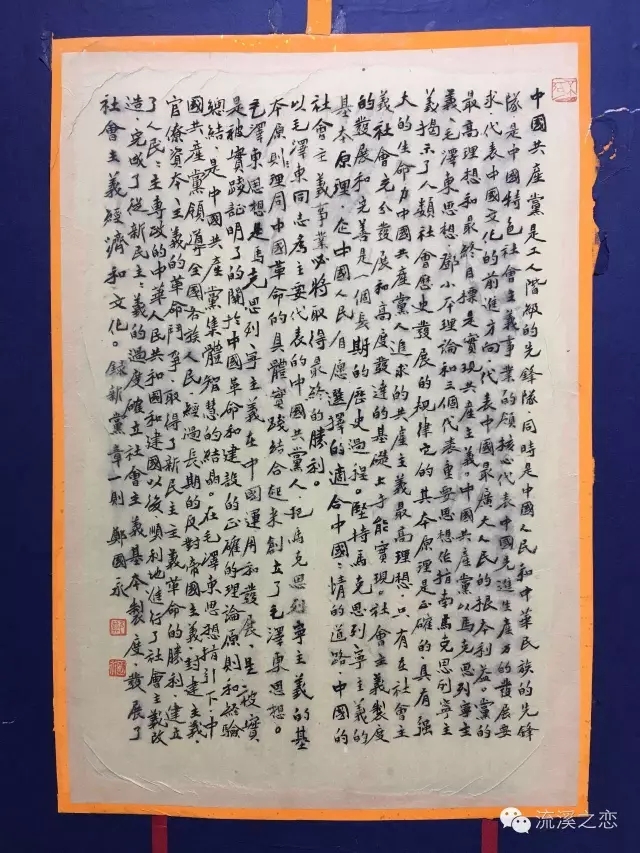 中國共產黨是工人階級的先鋒隊·同時是中國人民和中華民族的先鋒
隊·是中國特色社會主義事業的領核心代表中國先進生產力的發展要
求·代表中國文化的前進方向·代表中國最廣大人民的根本利益。黨的
最高理想和最終目標是實現共產主義。中國共產黨以馬克思列寧主
義、毛澤東思想·鄧小平理論和三個代表重要思想作指南馬克思列寧主
義揭示了人類社會歷史發展的規律它的其本原理是正確的具有強
大的生命力中國共產黨人追求的共產主義最高理想·只有在社會主
義社會充分發展和高度發達的基礎上才能實現。社會主義製度
的發展和完善是一個長期的歷史過程。堅持馬克思列寧主義的
基本原理·企中國人民自愿選擇的適合中國〻情的道路·中國的
社會主義事業必將取得最終的勝利。
以毛澤東同志為主要代表的中國共黨人·把馬克思列寧主義的基
本原則理同中國革命的具體實踐結合起来創立了毛澤東思想。
毛澤東思想是馬克思列寧主義在中國運用和發展、是被實
是被實踐証明了的關於中國革命和建設的正確的理論原則和經驗
總結·是中國共產黨集體智慧的結晶。在毛澤東思想指引下·中
國共產黨領導全國各族人民·經過長期的反對帝國主義·封建主義·
官僚資本主義的革命鬥爭·取得了新民主主義革命的勝利·建立
了人民〻主專政的中華人民共和國和建國以後順利地進行了社會主義改
造·完成了從新民主〻義的過度確立社會主義基本製度發展了
社會主義經濟和文化。錄新黨章一則 鄭國永
流溪之恋